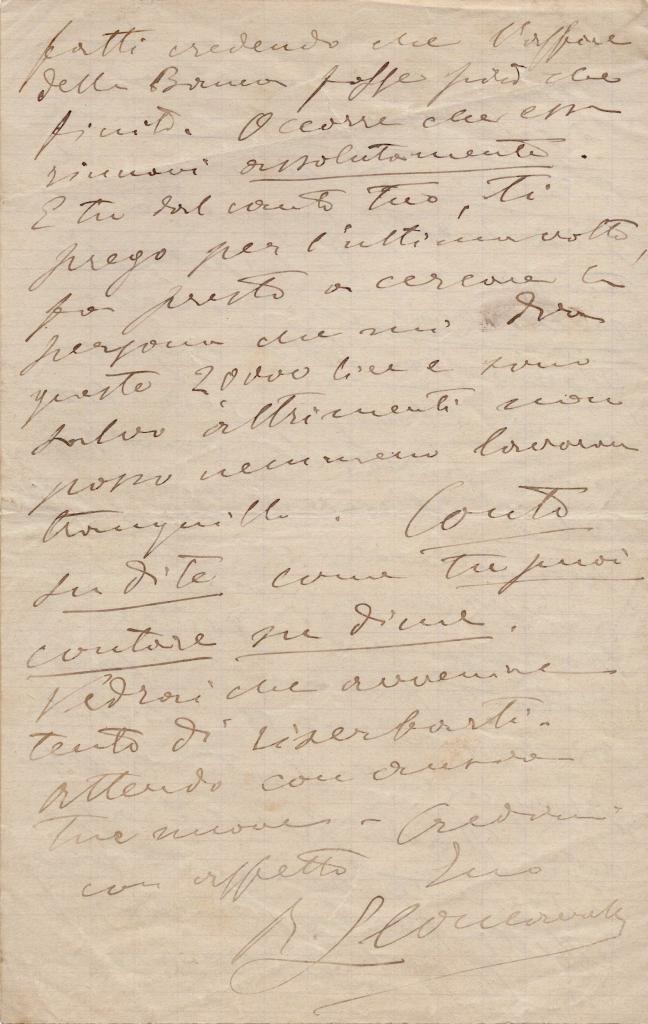 fatti credendo che l'affare
della Banca fosse più che
finito. Occorre che essa
rinnovi assolutamente.
E tu dal canto tuo, ti
prego per l'ultima volta,
fa presto a cercare la
persona che mi dia
queste 20000 lire e sono
salvo altrimenti non
posso nemmeno lavorare
tranquillo. Conto
su di te come tu puoi
contare su di me.
Vedrai che avvenire
tento di riserbarti.
Attendo con ansia
tue nuove - Credimi
con affetto Tuo
R. Leoncavallo